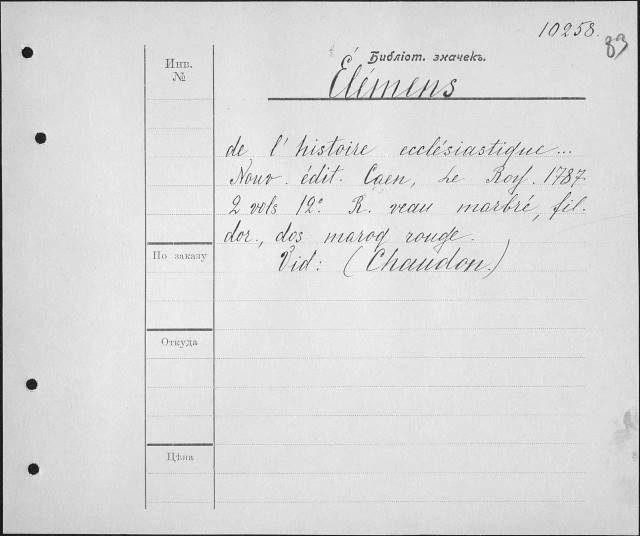 10258.
83
Библіот. значекъ.
Инв.
№
Élémens
de l'histoire ecclésiastique...
Nouv. édit. Caen, Le Roy. 1787.
2 vols 12º. R. veau marbré, fil.
dor., dos maroq rouge.
Vid: (Chaudon.)
По заказу
Откуда
Цѣна